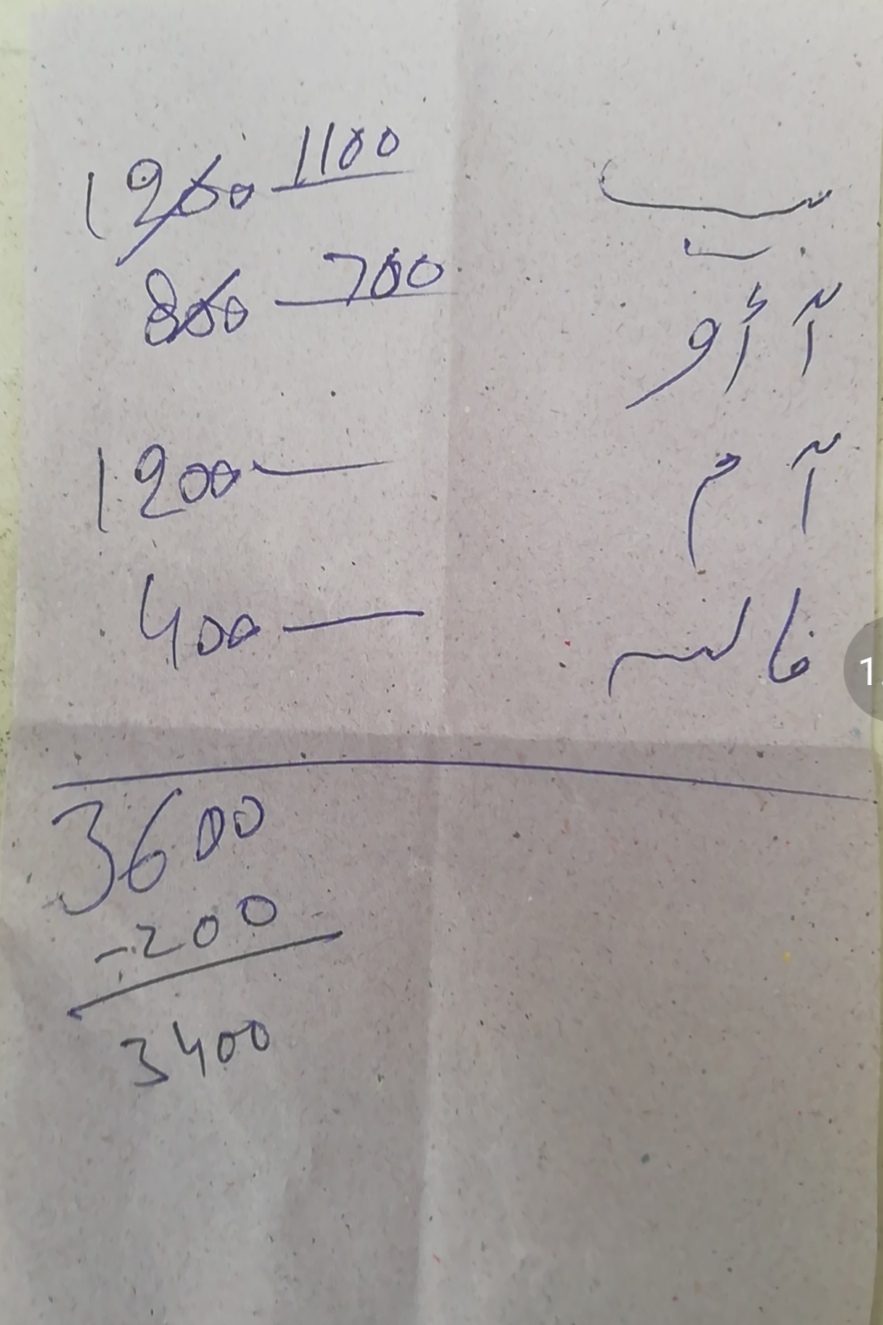 سیب 1200 1100
آڑو 800 700
آم 1200
فالسہ 400
3600
-200
3400